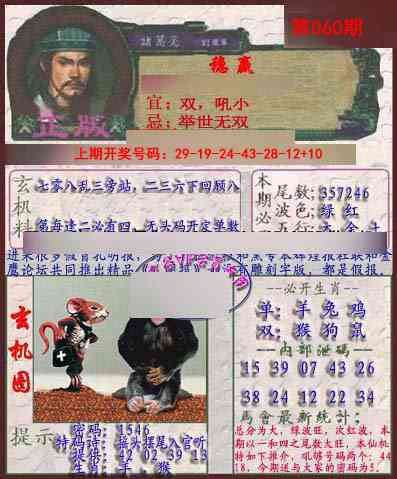 第060期
諸葛亮
稳赢
宜：双，吼小
忌：举世无双
正版
上期开奖号码：29-19-24-43-28-12+10
玄机料
七零八乱三旁站，二三六下回顾八
第每逢二必有四，无头码开定单数
本期必
尾数:357246
波色:绿 红
鹰论坛共同推出精品
没有雕刻字版，都是假报。
玄机图
--必开生肖--
单：羊 兔 鸡
双：猴 狗 鼠
--内部泄码--
15 39 07 43 26
38 24 12 22 34
馬會最新統計：
总分为大，绿波旺，次红波，本
期以一和四之尾数大旺，本仙机
特如下推介，吼够号码两个：44
18，今期送与大家的密码为5.
提示
密码：1546
特码诗：接头摆尾入官听
提供：42 02 39 13
生肖：羊，猴